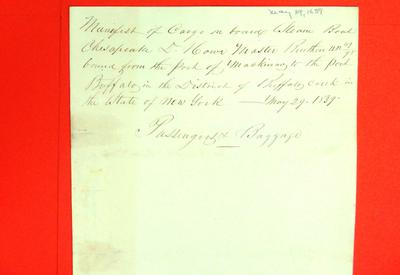 May 29, 1839
Manifest of Cargo on board Steam Boat
Chesapeake T. Howe Master Burthen
bound from the Port of Mackinac to the Port
Buffalo, in the District of Buffalo Creek in
the State of New York — May 29 - 1839 -
Passengers & Baggage